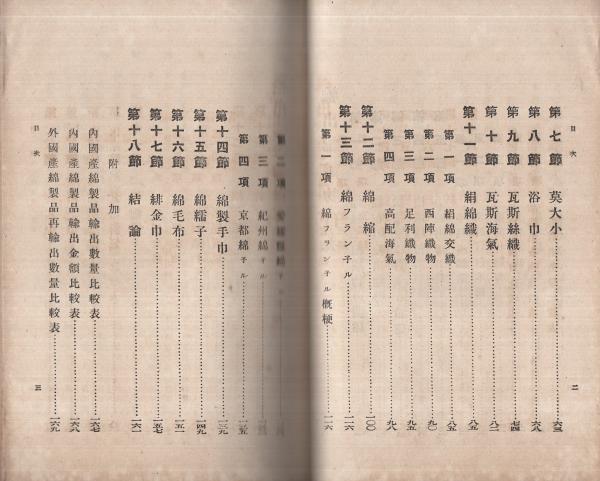 目次
第七節 莫大小……六三
第八節 浴巾……六八
第九節 瓦斯絲織……七四
第十節 瓦斯海氣……八二
第十一節 絹綿織……八五
第一項 絹綿交織……八五
第二項 西陣織物……九〇
第三項 足利織物……九五
第四項 高配海氣……九八
第十二節 綿縮……一〇〇
第十三節 綿フランネル……一一六
第一項 綿フランネル概梗……一一六
二
第二項
第三項 紀州綿ネル
第四項 京都綿ネル
第十四節 綿製手巾……一三九
第十五節 綿繻子……一四九
第十六節 綿毛布……一五一
第十七節 緋金巾……一五七
第十八節 結論……一六一
附加
內國產綿製品輸出數量比較表……一六七
內國產綿製品輸出金額比較表……一六八
外國產綿製品再輸出數量比較表……一六九
目次
三